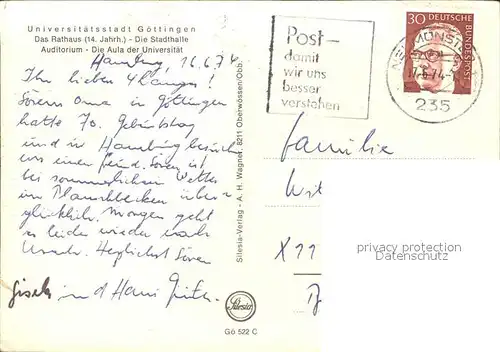 Universitätsstadt Göttingen
Das Rathaus (14. Jahrh.) - Die Stadthalle
Auditorium - Die Aula der Universität
Hamburg, 16.6.74
Ihr lieben
Oma in Göttingen
hatte 70. Geburtstag
und in Hamburg besuchen
wir einen Freund. Sören ist
bei sommerlichem Wetter
im Planschbecken über-
glücklich. Morgen geht
es leider wieder nach
Herzlichst
und Hans
Silesia-Verlag - A. H. Wagner, 8211 Oberwössen/Obb.
Silesia
Gö 522 C
Post –
damit
wir uns
besser
verstehen
30 DEUTSCHE
BUNDESPOST
NEUMÜNSTER
17.6.74
235
Familie
privacy protection
watermark